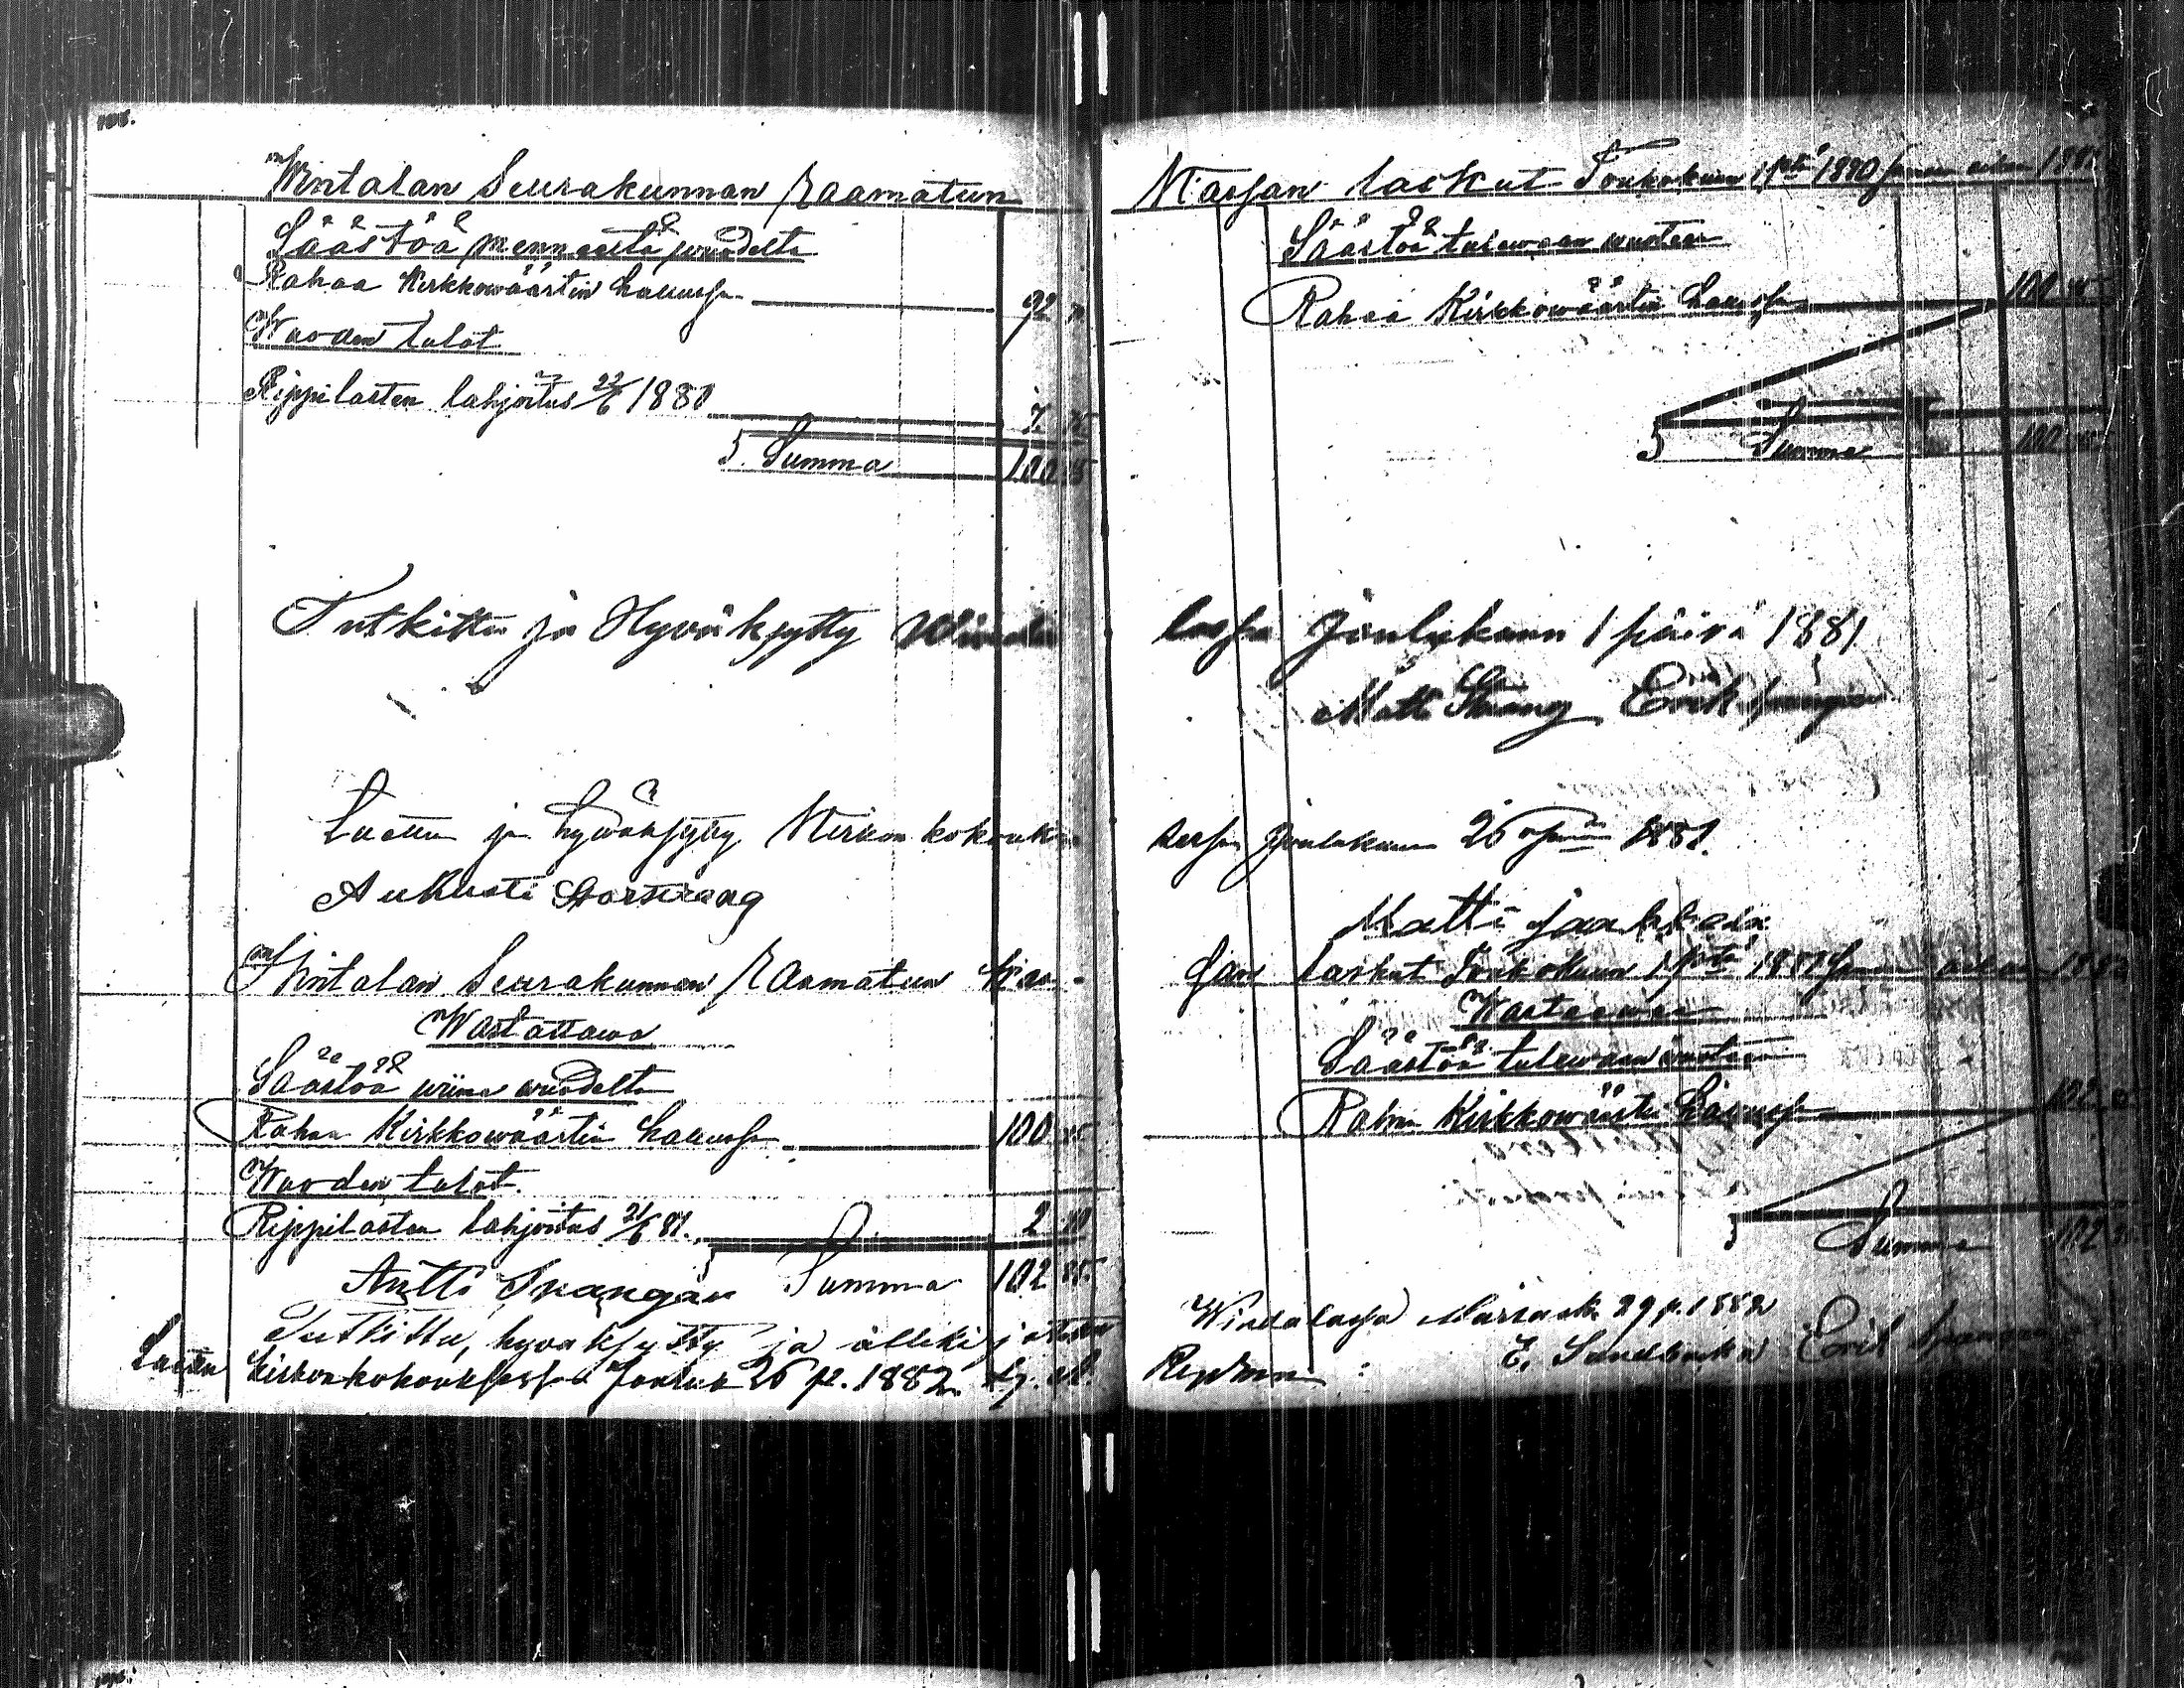 Wintalan Seurakunnan Raamatun
Säästöä menneestä wuodelta
Rahaa Kirkkowäärtin hallussa 92
Wuoden tulot
Rippilasten lahjoitus 22/6 1880 7
Summa 100 45
Tutkittu ja Hyväksytty
Luettu ja hywäksytty Kirkon kokouk
Aukusti
Wintalan Seurakunnan Raamatun Kas-
Wastattawa
Säästöä wiime wuodelta
Rahaa Kirkkowäärtin hallussa 100 45
Wuoden tulot.
Rippilasten lahjoitus 21/6 81. 2
Antti Summa 102
Tutkittu, hyväksytty ja
Luettu Kirkonkokouksessa Jouluk 26 p. 1882.
Kassan laskut Toukokuun 1 pstä 1880
Säästöä tulewaan wuoteen
Rahaa Kirkkowäärtin hallussa 100
Summa 100
lassa Joulukuun 1 päivä 1881
Matti Strang Erik
sessa Joulukuun 26 1881.
Matti Jaakkola
san laskut Toukokuun 1 pstä
Wastaawaa
Säästöä tulewaan wuoteen
Rahaa Kirkkowäärtin hallussa
Summa 102
Windalassa Marrask. 29 p. 1882
E. Sandbacka Erik